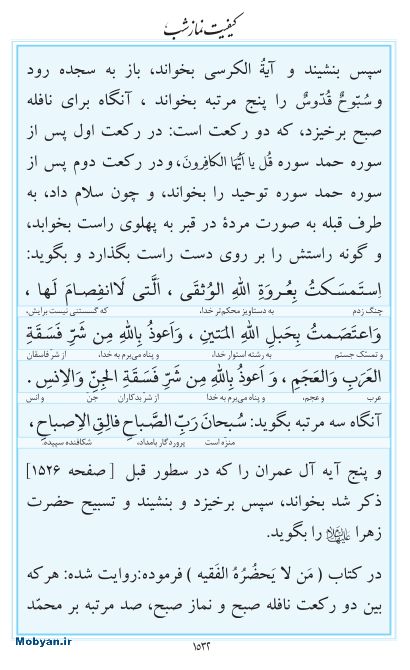 کیفیت نماز شب
سپس بنشیند و آیةُ الکرسی بخواند، باز به سجده رود
و سُبّوحٌ قُدّوسٌ را پنج مرتبه بخواند ، آنگاه برای نافله
صبح برخیزد، که دو رکعت است: در رکعت اول پس از
سوره حمد سوره قُل یا اَیُّهَا الکافِرونَ، و در رکعت دوم پس از
سوره حمد سوره توحید را بخواند، و چون سلام داد، به
طرف قبله به صورت مردهٔ در قبر به پهلوی راست بخوابد،
و گونه راستش را بر روی دست راست بگذارد و بگوید:
اِستَمسَکتُ بِعُروَةِ اللهِ الوُثقَی ، الَّتی لَاانفِصامَ لَها ،
چنگ زدم به دستاویز محکم‌تر خدا، که گسستنی نیست برایش،
وَاعتَصَمتُ بِحَبلِ اللهِ المَتینِ ، وَ اَعوذُ بِاللهِ مِن شَرِّ فَسَقَةِ
و تمسّک جستم به رشته استوار خدا، و پناه می‌برم به خدا، از شرّ فاسقان
العَرَبِ وَالعَجَمِ ، وَ اَعوذُ بِاللهِ مِن شَرِّ فَسَقَةِ الجِنِّ وَالاِنسِ .
عرب و عجم، و پناه می‌برم به خدا از شرّ بدکاران جن و انس
آنگاه سه مرتبه بگوید: سُبحانَ رَبِّ الصَّباحِ فالِقِ الاِصباحِ ،
منزّه است پروردگار بامداد، شکافنده سپیده.
و پنج آیه آل عمران را که در سطور قبل [ صفحه ۱۵۲۶]
ذکر شد بخواند، سپس برخیزد و بنشیند و تسبیح حضرت
زهرا علیها‌السلام را بگوید.
در کتاب ( مَن لا یَحضُرُهُ الفَقیه ) فرموده: روایت شده: هرکه
بین دو رکعت نافله صبح و نماز صبح، صد مرتبه بر محمّد
۱۵۳۲
Mobyan.ir